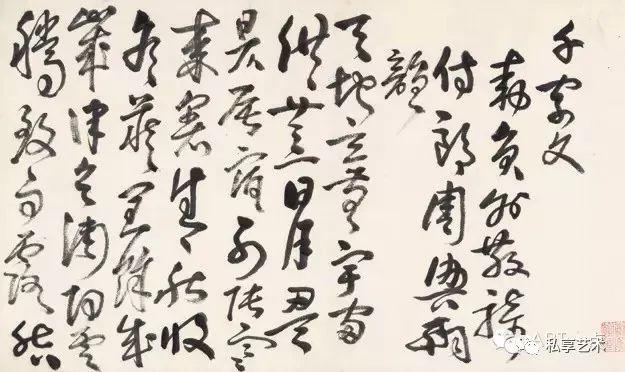 千字文
勅員外散騎
侍郎周興嗣
韻
天地玄黄宇宙
洪荒日月盈
昃辰宿列張寒
来暑往秋收
冬藏閏餘成
歲律吕調陽雲
騰致雨露結
私享艺术